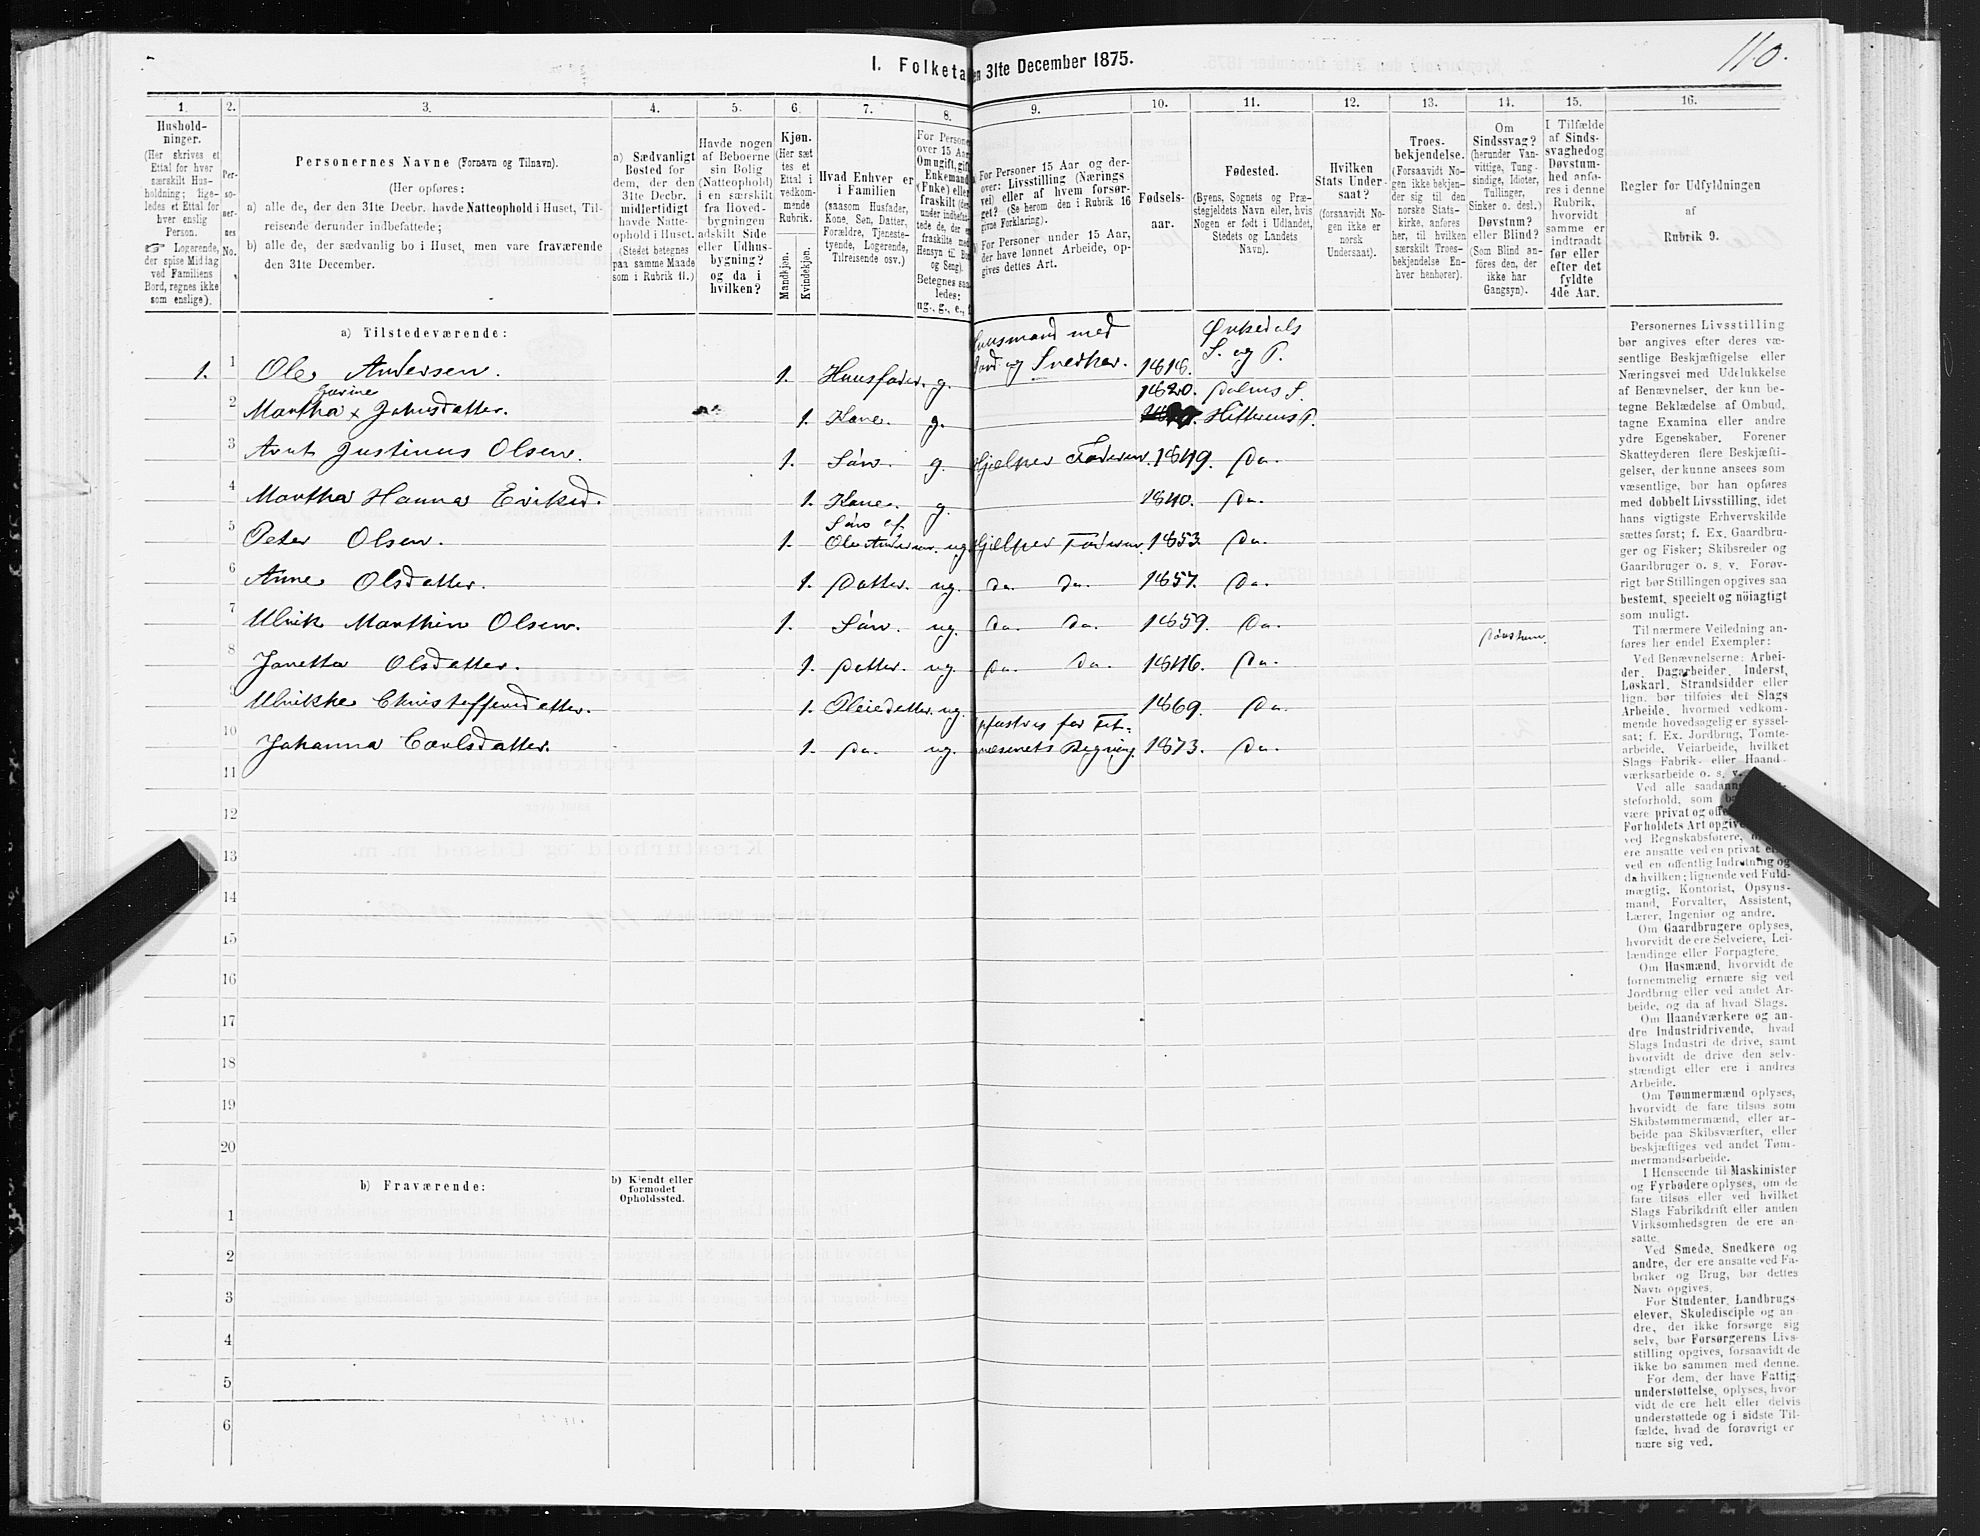 110.
I. Folketa en 31te December 1875.
1. 2. 3. 4. 5. 6. 7. 8. 9. 10. 11. 12. 13. 14. 15. 16.
Hushold-
ninger.
(Her skrives et
Ettal for hver
særskilt Hus-
holdning; lige-
ledes et Ettal for
hver enslig
Person.
☞ Logerende,
der spise Middag
ved Familiens
Bord, regnes ikke
som enslige).
Per-
so-
ner-
nes
No.
Personernes Navne (Fornavn og Tilnavn).
(Her opføres:
a) alle de, der den 31te Decbr. havde Natteophold i Huset, Til-
reisende derunder indbefattede;
b) alle de, der sædvanlig bo i Huset, men vare fraværende
den 31te December.
a) Sædvanligt
Bosted for
dem, der den
31te Decbr.
midlertidigt
havde Natte-
ophold i Huset.
(Stedet betegnes
paa samme Maade
som i Rubrik 11.)
Havde nogen
af Beboerne
sin Bolig
(Natteophold)
i en særskilt
fra Hoved-
bygningen
adskilt Side
eller Udhus-
bygning?
og da i
hvilken?
Kjøn.
(Her sæt
tes et
Ettal i
vedkom-
mende
Rubrik.
Mandkjøn.
Kvindekjøn.
Hvad Enhver er
i Familien
(saasom Husfader,
Kone, Søn, Datter,
Forældre, Tjeneste-
tyende, Logerende,
Tilreisende osv.)
For Person
over 15 Aar
Om ugift, gift
Enkemand
(Enke) eller
fraskilt (der-
under indbefat-
tede de, der er
fraskilte med
Hensyn til Bo
og Seng).
Betegnes saa
ledes:
ug., g., e., f
For Personer 15 Aar og der-
over: Livsstilling (Nærings
vei) eller af hvem forsør-
get? (Se herom den i Rubrik 16
givne Forklaring).
For Personer under 15 Aar,
der have lønnet Arbeide, op-
gives dettes Art.
Fødsels-
aar.
Fødested.
(Byens, Sognets og Præ-
stegjeldets Navn eller, hvis
Nogen er født i Udlandet,
Stedets og Landets
Navn).
Hvilken
Stats Under-
saat?
(forsaavidt No-
gen ikke er
norsk
Undersaat).
Troes-
bekjendelse.
(Forsaavidt No-
gen ikke bekjen-
der sig til den
norske Stats-
kirke, anføres
her, til hvilken
særskilt Troes-
bekjendelse En-
hver henhører).
Om
Sindssvag?
(herunder Van-
vittige, Tung-
sindige, Idioter,
Tullinger,
Sinker o. desl.)
Døvstum?
eller Blind?
(Som Blind an-
føres den, der
ikke har
Gangsyn).
I Tilfælde
af Sinds-
svaghed og
Døvstum-
hed anfø-
res i denne
Rubrik,
hvorvidt
samme er
indtraadt
før eller
efter det
fyldte
4de Aar.
Regler for Udfyldningen
af
Rubrik 9.
a) Tilstedeværende:
1. 1 Ole Andersen. 1. Huusfader. g. Huusmand med Jord og Snedker. 1818. Ørkedals S. og P.
2 Martha x Jørine Johnsdatter. 1. Kone. g. 1820. Dolms S. Hitterens P.
3 Arnt Justinus Olsen. 1. Søn. g. Hjelper Faderen. 1849. Do.
4 Martha Hanna Eriksd. 1. Kone. g. 1840. Do.
5 Peter Olsen. 1. Søn af Ole Andersen. ug. Hjelper Faderen. 1853. Do.
6 Anne Olsdatter. 1. Datter. ug. Do. Do. 1857. Do.
7 Ulrik Marthin Olsen. 1. Søn. ug. Do. Do. 1859. Do.
8 Janetta Olsdatter. 1. Datter. ug. Do. Do. 1846. Do. Døvstum.
9 Ulrikke Christoffersdatter. 1. Pleiedatter. ug. 1869. Do.
10 Johanna Carlsdatter. 1. Do. ug. opfostres for Fat-
væsenets Regning. 1873. Do.
11
12
13
14
15
16
17
18
19
20
b) Fraværende:
b) Kjendt eller
formodet
Opholdssted.
1
2
3
4
5
6
Personernes Livsstilling
bør angives efter deres væ-
sentlige Beskjæftigelse eller
Næringsvei med Udelukkelse
af Benævnelser, der kun be-
tegne Beklædelse af Ombud,
tagne Examina eller andre
ydre Egenskaber. Forener
Skatteyderen flere Beskjæfti-
gelser, der kunne ansees som
væsentlige, bør han opføres
med dobbelt Livsstilling, idet
hans vigtigste Erhvervskilde
sættes først; f. Ex. Gaardbru-
ger og Fisker; Skibsreder og
Gaardbruger o. s. v. Forøv-
rigt bør Stillingen opgives saa
bestemt, specielt og nöiagtigt
som muligt.
Til nærmere Veiledning an-
føres her endel Exempler:
Ved Benævnelserne: Arbei-
der, Dagarbeider, Inderst,
Løskarl, Strandsidder eller
lign. bør tilføies det Slags
Arbeide, hvormed vedkom-
mende hovedsagelig er syssel-
sat; f. Ex. Jordbrug, Tomte-
arbeide, Veiarbeide, hvilket
Slags Fabrik- eller Haand-
værksarbeide o. s. v.
Ved alle saadann
steforhold, som b
være privat og off
Forholdets Art opgiv
ved Regnskabsførere,
ere ansatte ved en privat e
ved en offentlig Indretning og
da hvilken; lignende ved Fuld-
mægtig, Kontorist, Opsyns-
mand, Forvalter, Assistent,
Lærer, Ingeniør og andre.
Om Gaardbrugere oplyses,
hvorvidt de ere Selveiere, Lei-
lændinge eller Forpagtere.
Om Husmænd, hvorvidt de
fornemmelig ernære sig ved
Jordbrug eller ved andet Ar-
beide, og da af hvad Slags.
Om Haandværkere og an-
dre Industridrivende, hvad
Slags Industri de drive, samt
hvorvidt de drive den selv-
stændigt eller ere i andres
Arbeide.
Om Tømmermænd oplyses,
hvorvidt de fare tilsøs som
Skibstømmermænd, eller ar-
beide paa Skibsværfter, eller
beskjæftiges ved andet Tøm-
mermandsarbeide.
I Henseende til Maskinister
og Fyrbødere oplyses, om de
fare tilsøs eller ved hvilket
Slags Fabrikdrift eller anden
Virksomhedsgren de ere an-
satte.
Ved Smede, Snedkere og
andre, der ere ansatte ved Fa-
briker og Brug, bør dettes
Navn opgives.
For Studenter, Landbrugs-
elever, Skoledisciple og an-
dre, der ikke forsørge sig
selv, bør Forsørgerens Livs-
stilling opgives, forsaavidt de
ikke bo sammen med denne.
For dem, der have Fattig-
understøttelse, oplyses, hvor
vidt de ere helt eller delvis
understøttede og i sidste Til-
fælde, hvad de forøvrigt er
nære sig ved.